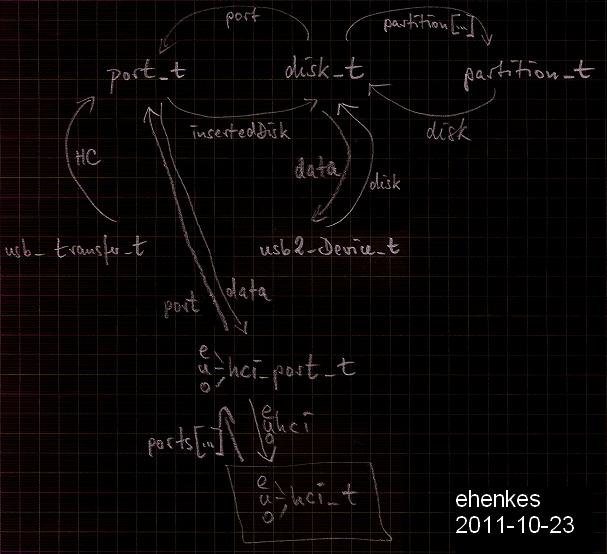 port
partition[...]
port_t
disk_t
partition_t
insertedDisk
disk
HC
data
disk
usb_transfer_t
usb2_Device_t
port
data
e
u
o
hci_port_t
ports[...]
e
u
o
hci
e
u
o
hci_t
ehenkes
2011-10-23